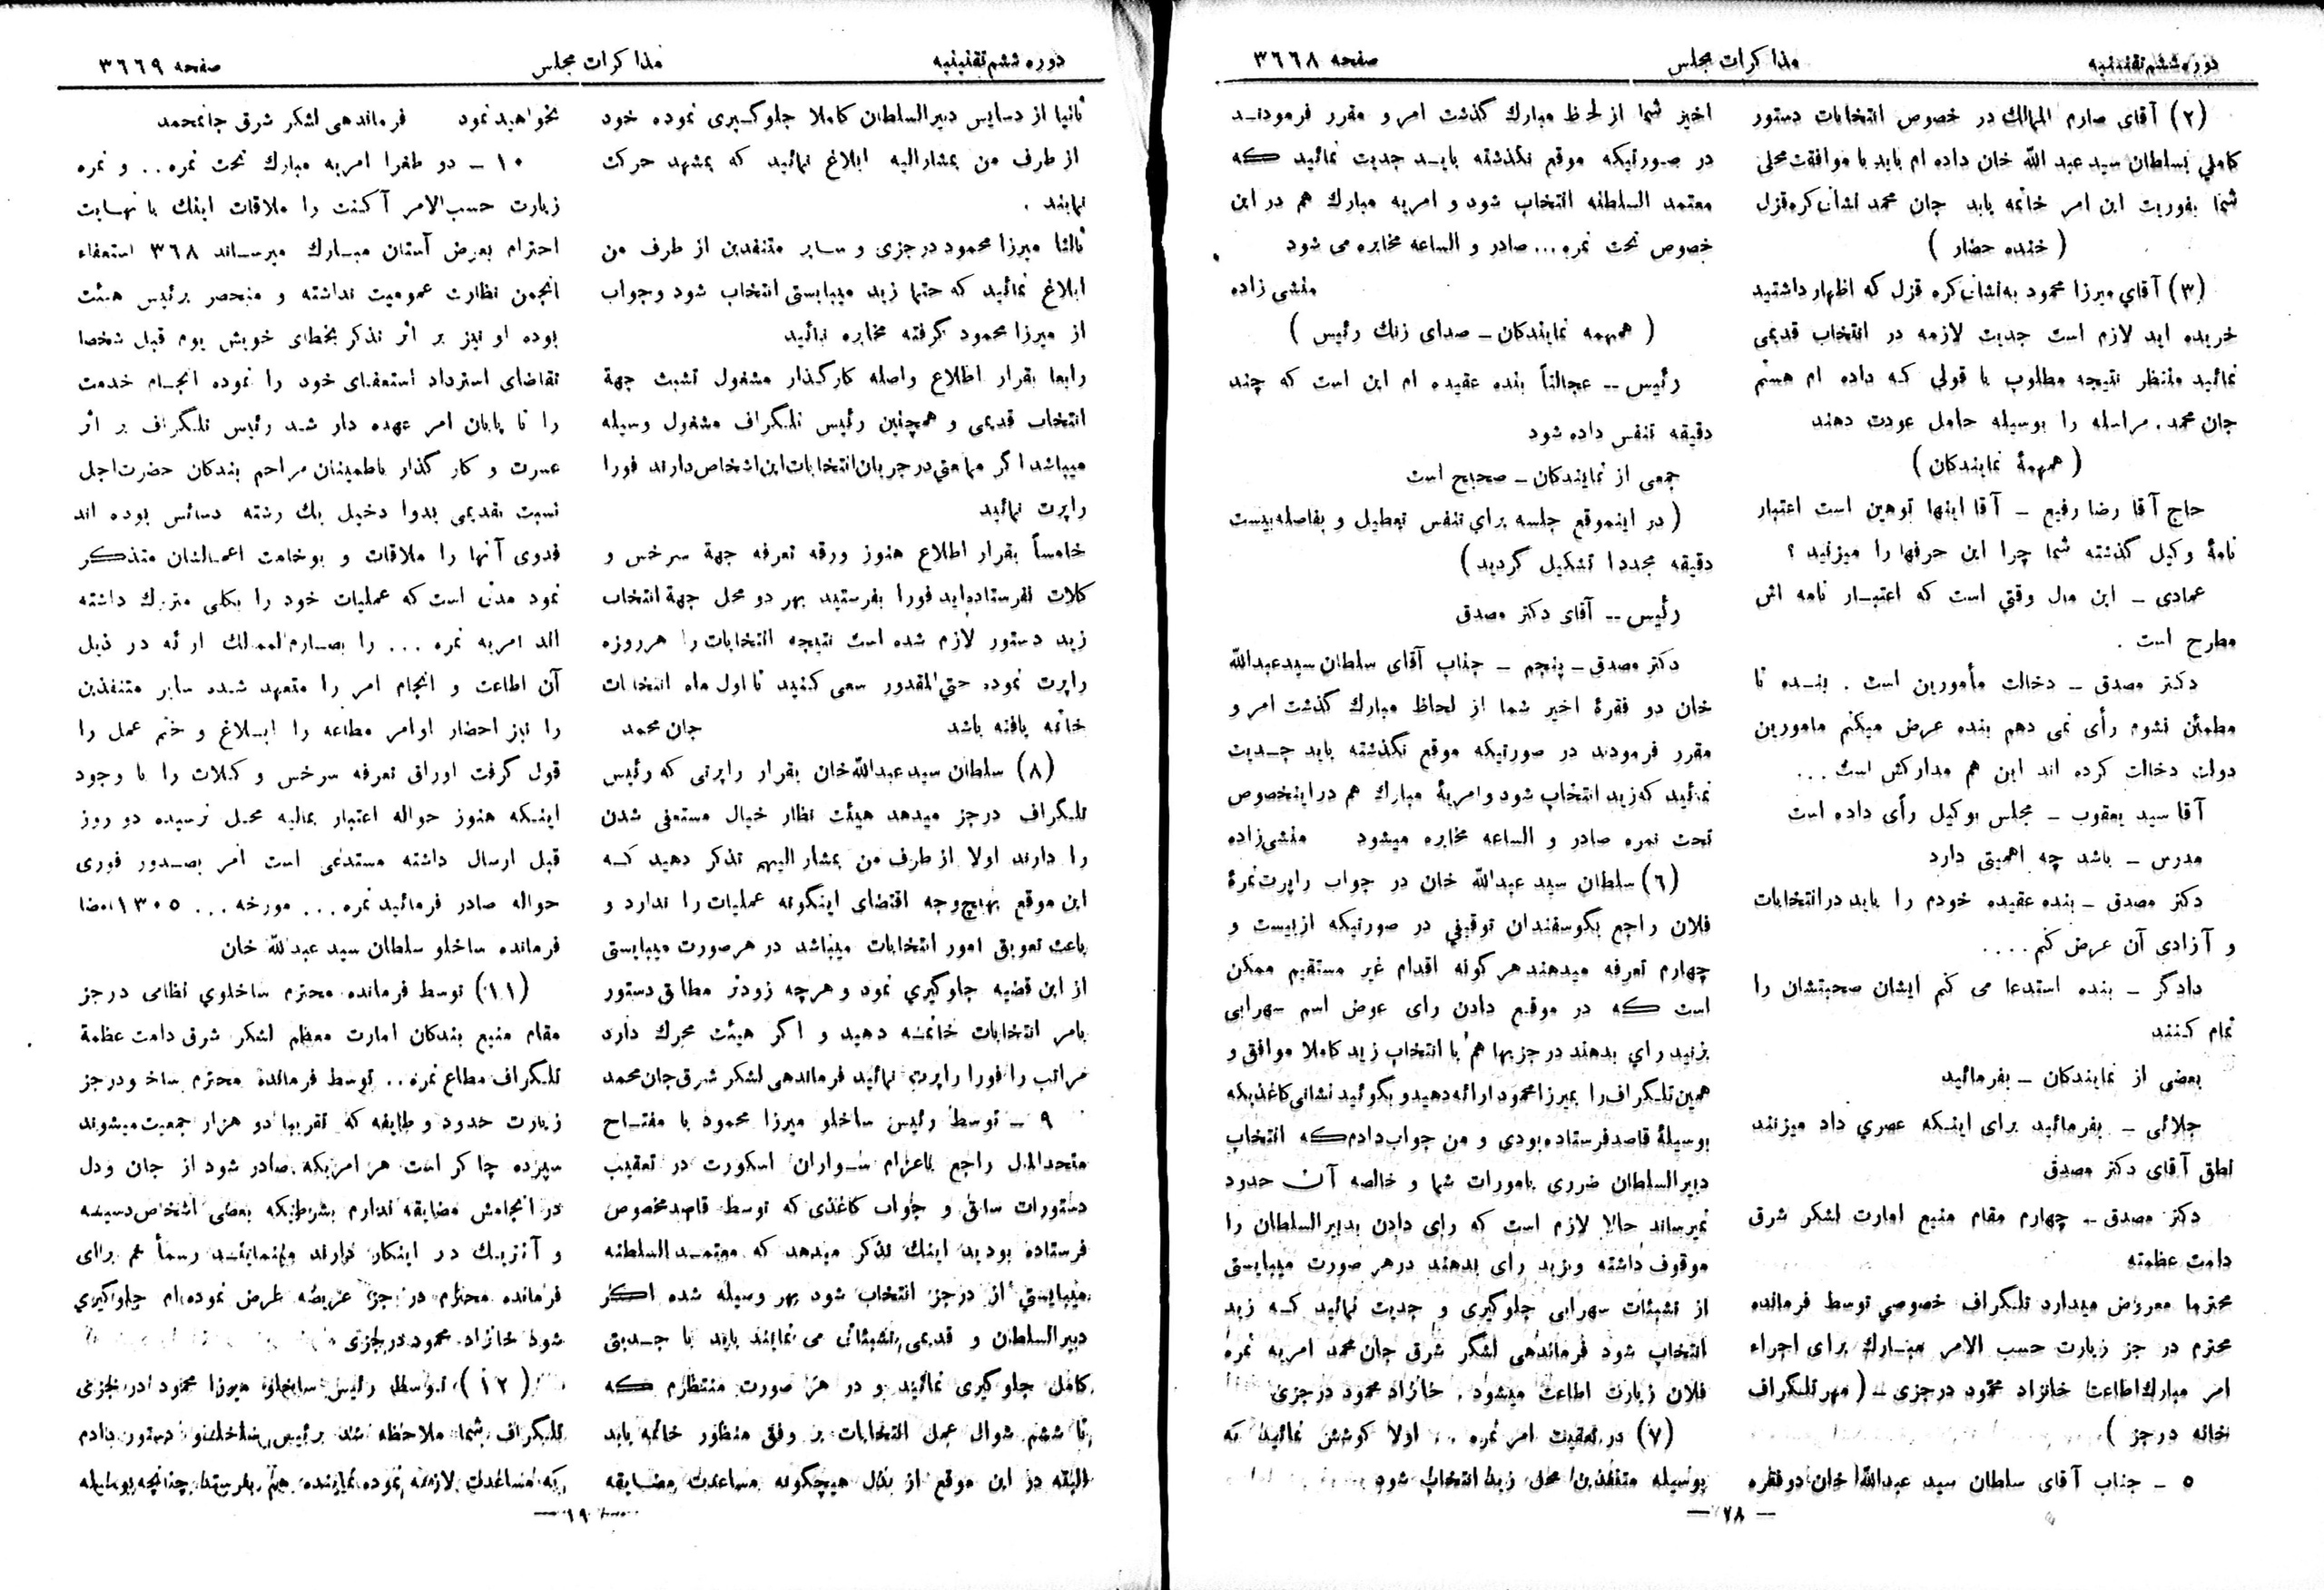 دوره ششم تقنینیه
مذاکرات مجلس
صفحه ۳٦٦۸
(۲) آقای صارم الممالك در خصوص انتخابات دستور
کاملي بسلطان سید عبد الله خان داده ام باید با موافقت محلی
شما بفوریت این امر خاتمه یابد جان محمد نشان کره قزل
( خنده حضار )
(۳) آقاي میرزا محمود به نشان کره قزل که اظهار داشتید
خریده اید لازم است جدیت لازمه در انتخاب قدیمی
نمائید منتظر نتیجه مطلوب با قولی که داده ام هستم
جان محمد . مراسله را بوسیله حامل عودت دهند
( همهمهٔ نمایندکان )
حاج آقا رضا رفیع ــ آقا اینها توهین است اعتبار
نامهٔ وکیل گذشته شما چرا این حرفها را میزنید ؟
عمادی ــ این مال وقتي است که اعتبار نامه اش
مطرح است .
دکتر مصدق ــ دخالت مأمورین است . بنده تا
مطمئن نشوم رأی نمی دهم بنده عرض میکنم مامورین
دولت دخالت کرده اند این هم مدارکش است ...
آقا سید یعقوب ــ مجلس بوکیل رأی داده است
مدرس ــ باشد چه اهمیتی دارد
دکتر مصدق ــ بنده عقیده خودم را باید در انتخابات
و آزادی آن عرض کنم ....
دادگر ــ بنده استدعا می کنم ایشان صحبتشان را
تمام کنند
بعضی از نمایندکان ــ بفرمائید
جلائی ــ بفرمائید برای اینکه عصري داد میزنند
نطق آقای دکتر مصدق
دکتر مصدق ــ چهارم مقام منیع امارت لشکر شرق
دامت عظمته
محترما معروض میدارد تلگراف خصوصي توسط فرمانده
محترم در جز زیارت حسب الامر مبارك برای اجراء
امر مبارك اطاعت خانزاد محمود درجزی ــ ( مهر تلگراف
خانه درجز )
٥ ــ جناب آقای سلطان سید عبدالله خان دو فقره
اخیر شما از لحاظ مبارك گذشت امر و مقرر فرمودند
در صورتیکه موقع نگذشته باید جدیت نمائید که
معتمد السلطنه انتخاب شود و امریه مبارك هم در این
خصوص تحت نمره ... صادر و الساعه مخابره می شود
منشی زاده
( همهمه نمایندکان ــ صدای زنك رئیس )
رئیس ــ عجالتاً بنده عقیده ام این است که چند
دقیقه تنفس داده شود
جمعی از نمایندکان ــ صحیح است
( در اینموقع جلسه براي تنفس تعطیل و بفاصله بیست
دقیقه مجددا تشکیل گردید )
رئیس ــ آقای دکتر مصدق
دکتر مصدق ــ پنجم ــ جناب آقای سلطان سید عبدالله
خان دو فقرهٔ اخیر شما از لحاظ مبارك گذشت امر و
مقرر فرمودند در صورتیکه موقع نگذشته باید جدیت
نمائید که زید انتخاب شود و امریهٔ مبارك هم در اینخصوص
تحت نمره صادر و الساعه مخابره میشود منشی زاده
(٦) سلطان سید عبدالله خان در جواب راپرت نمرهٔ
فلان راجع بگوسفندان توقیفي در صورتیکه از بیست و
چهارم تعرفه میدهند هر گونه اقدام غیر مستقیم ممکن
است که در موقع دادن رای عوض اسم سهرابی
بزنید راي بدهند درجزیها هم با انتخاب زید کاملا موافق و
همین تلگراف را بمیرزا محمود ارائه دهید و بگوئید نشانی کاغذیکه
بوسیلهٔ قاصد فرستاده بودی و من جواب دادم که انتخاب
دبیر السلطان ضرری بامورات شما و خالصه آن حدود
نمیرساند حالا لازم است که رای دادن بدبیر السلطان را
موقوف داشته و بزید رای بدهند در هر صورت میبایستی
از تشبثات سهرابی جلوگیری و جدیت نمائید که زید
انتخاب شود فرماندهی لشکر شرق جان محمد امریه نمرهٔ
فلان زیارت اطاعت میشود . خانزاد محمود درجزی
(۷) در تعقیب امر نمره ... اولا کوشش نمائید که
بوسیله متنفذین محل زید انتخاب شود
— ۷۸ —
دوره ششم تقنینیه
مذاکرات مجلس
صفحه ۳٦٦۹
ثانیا از دسایس دبیر السلطان کاملا جلوگیری نموده خود
از طرف من بمشارالیه ابلاغ نمائید که بمشهد حرکت
نمایند .
ثالثا میرزا محمود درجزی و سایر متنفذین از طرف من
ابلاغ نمائید که حتما زید میبایستی انتخاب شود و جواب
از میرزا محمود گرفته مخابره نمائید
رابعا بقرار اطلاع واصله کارگذار مشغول تشبث جهة
انتخاب قدیمی و همچنین رئیس تلگراف مشغول وسیله
میباشد اگر ممانعتي در جریان انتخابات این اشخاص دارند فورا
راپرت نمائید
خامساً بقرار اطلاع هنوز ورقه تعرفه جهة سرخس و
کلات نفرستاده اید فورا بفرستید بهر دو محل جهة انتخاب
زید دستور لازم شده است نتیجه انتخابات را هر روزه
راپرت نموده حتي المقدور سعی کنید تا اول ماه انتخابات
خاتمه یافته باشد جان محمد
(۸) سلطان سید عبدالله خان بقرار راپرتی که رئیس
تلگراف درجز میدهد هیئت نظار خیال مستعفی شدن
را دارند اولا از طرف من بمشار الیهم تذکر دهید که
این موقع بهیچوجه اقتضای اینگونه عملیات را ندارد و
باعث تعویق امور انتخابات میباشد در هر صورت میبایستی
از این قضیه جلوگیري نمود و هرچه زودتر مطابق دستور
بامر انتخابات خاتمه دهید و اگر هیئت محرك دارد
مراتب را فورا راپرت نمائید فرماندهی لشکر شرق جان محمد
۹ ــ توسط رئیس ساخلو میرزا محمود با مفتاح
متحدالمال راجع باعزام سواران اسکورت در تعقیب
دستورات سابق و جواب کاغذی که توسط قاصد مخصوص
فرستاده بودید اینك تذکر میدهد که معتمد السلطنه
میبایستي از درجز انتخاب شود بهر وسیله شده اگر
دبیر السلطان و قدیمی تشبثاتی می نمایند باید با جدیت
کامل جلوگیری نمائید و در هر صورت منتظرم که
تا ششم شوال عمل انتخابات بر وفق منظور خاتمه یابد
البته در این موقع از بذل هیچگونه مساعدت مضایقه
نخواهید نمود فرماندهی لشکر شرق جانمحمد
۱۰ ــ دو طغرا امریه مبارك تحت نمره .. و نمره
زیارت حسب الامر آکنت را ملاقات اینك با نهایت
احترام بعرض آستان مبارك میرساند ۳٦۸ استعفاء
انجمن نظارت عمومیت نداشته و منحصر برئیس هیئت
بوده او نیز بر اثر تذکر بخطای خویش یوم قبل شخصا
تقاضای استرداد استعفای خود را نموده انجام خدمت
را تا پایان امر عهده دار شد رئیس تلگراف بر اثر
عسرت و کار گذار باطمینان مراحم بندکان حضرت اجل
نسبت بقدیمی بدوا دخیل یك رشته دسائس بوده اند
فدوی آنها را ملاقات و بوخامت اعمالشان متذکر
نمود مدتی است که عملیات خود را بکلی متروك داشته
اند امریه نمره ... را بصارم الممالك ارائه در ذیل
آن اطاعت و انجام امر را متعهد شده سایر متنفذین
را نیز احضار اوامر مطاعه را ابلاغ و ختم عمل را
قول گرفت اوراق تعرفه سرخس و کلات را با وجود
اینکه هنوز حواله اعتبار بمالیه محل نرسیده دو روز
قبل ارسال داشته مستدعی است امر بصدور فوری
حواله صادر فرمائید نمره ... مورخه ... ۱۳۰٥ امضا
فرمانده ساخلو سلطان سید عبدالله خان
(۱۱) توسط فرمانده محترم ساخلوي نظامی درجز
مقام منیع بندکان امارت معظم لشکر شرق دامت عظمة
تلگراف مطاع نمره .. توسط فرماندهٔ محترم ساخلو درجز
زیارت حدود و طایفه که تقریبا دو هزار جمعیت میشوند
سپرده چاکر است هر امریکه صادر شود از جان ودل
در انجامش مضایقه ندارم بشرطیکه بعضی اشخاص دسیسه
و آنتریك در اینکار دارند و مینمایند رسماً هم برای
فرمانده محترم درجز عریضه عرض نموده ام جلوگیري
شود خانزاد محمود درجزی
(۱۲) توسط رئیس ساخلو میرزا محمود درجزی
تلگراف شما ملاحظه شد برئیس ساخلو دستور دادم
که مساعدت لازمه نموده نماینده هم بفرستد چنانچه بوسیله